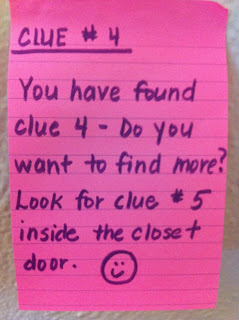 CLUE # 4
You have found
clue 4 - Do you
want to find more?
Look for clue # 5
inside the closet
door.